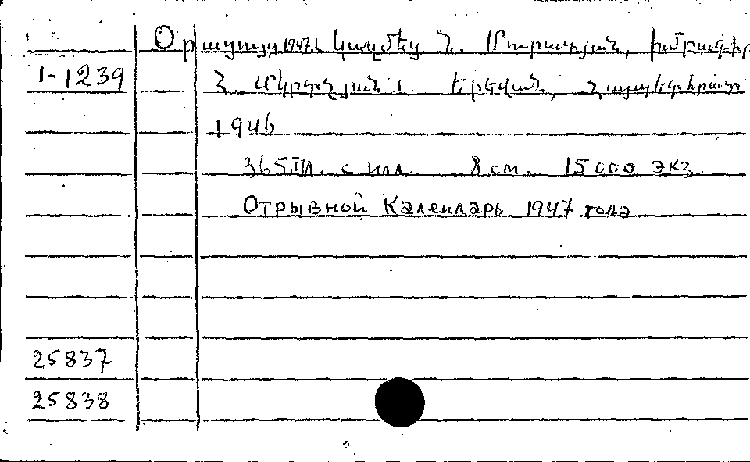 Օրացույց 1947 թ. Կազմեց Հ. Մուրադյան, խմբագիր
1-1239 Հ. Մկրտչյան։ Երևան, Հայպետհրատ
1946
365 лл. с илл. 8 см. 15000 экз
Отрывной Календарь 1947 года
25837
25838